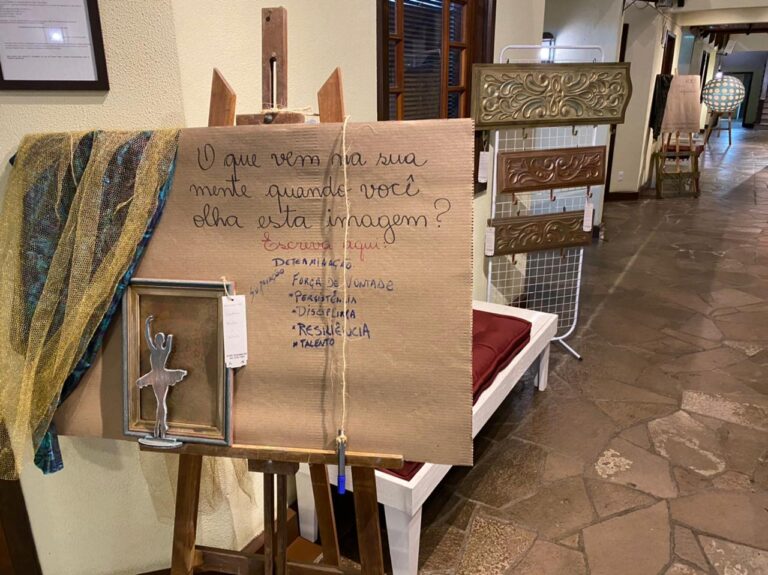 O que vem na sua
mente quando você
olha esta imagem?
Escreva aqui:
DETERMINAÇÃO
SUPERAÇÃO
FORÇA DE VONTADE
*PERSISTÊNCIA
*DISCIPLINA
*RESILIÊNCIA
*TALENTO